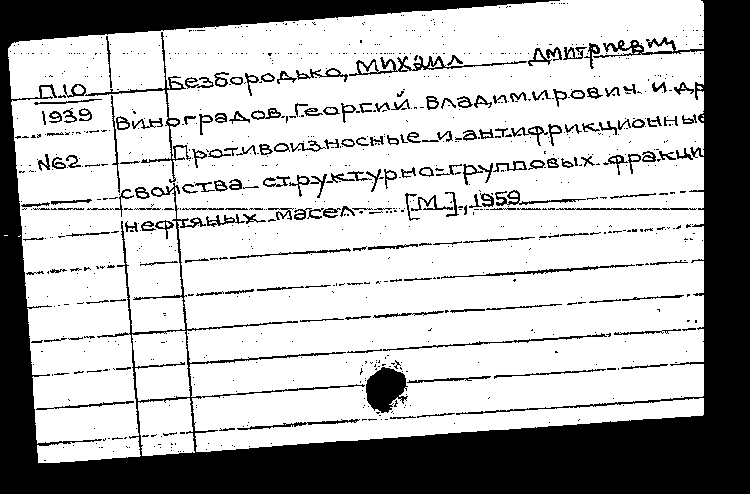 Безбородько, Михаил Дмитриевич
П.10
1939 Виноградов, Георгий Владимирович и др
N62 Противоизносные и антифрикционные
свойства структурно-групповых фракци
нефтяных масел. [М.], 1959